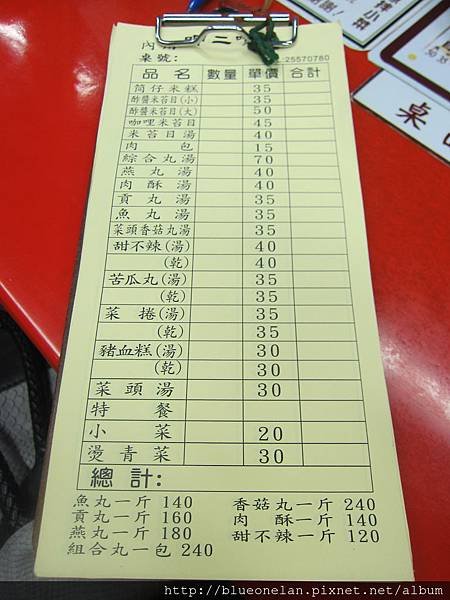 內用
桌號: :25570780
品名 數量 單價 合計
筒仔米糕 35
酢醬米苔目(小) 35
酢醬米苔目(大) 50
咖哩米苔目 45
米苔目湯 40
肉包 15
綜合丸湯 70
燕丸湯 40
肉酥湯 40
貢丸湯 35
魚丸湯 35
菜頭香菇丸湯 35
甜不辣(湯) 40
(乾) 40
苦瓜丸(湯) 35
(乾) 35
菜捲(湯) 35
(乾) 35
豬血糕(湯) 30
(乾) 30
菜頭湯 30
特餐
小菜 20
燙青菜 30
總計:
魚丸一斤 140 香菇丸一斤 240
貢丸一斤 160 肉酥一斤 140
燕丸一斤 180 甜不辣一斤 120
組合丸一包 240
桌
http://blueonelan.pixnet.net/album